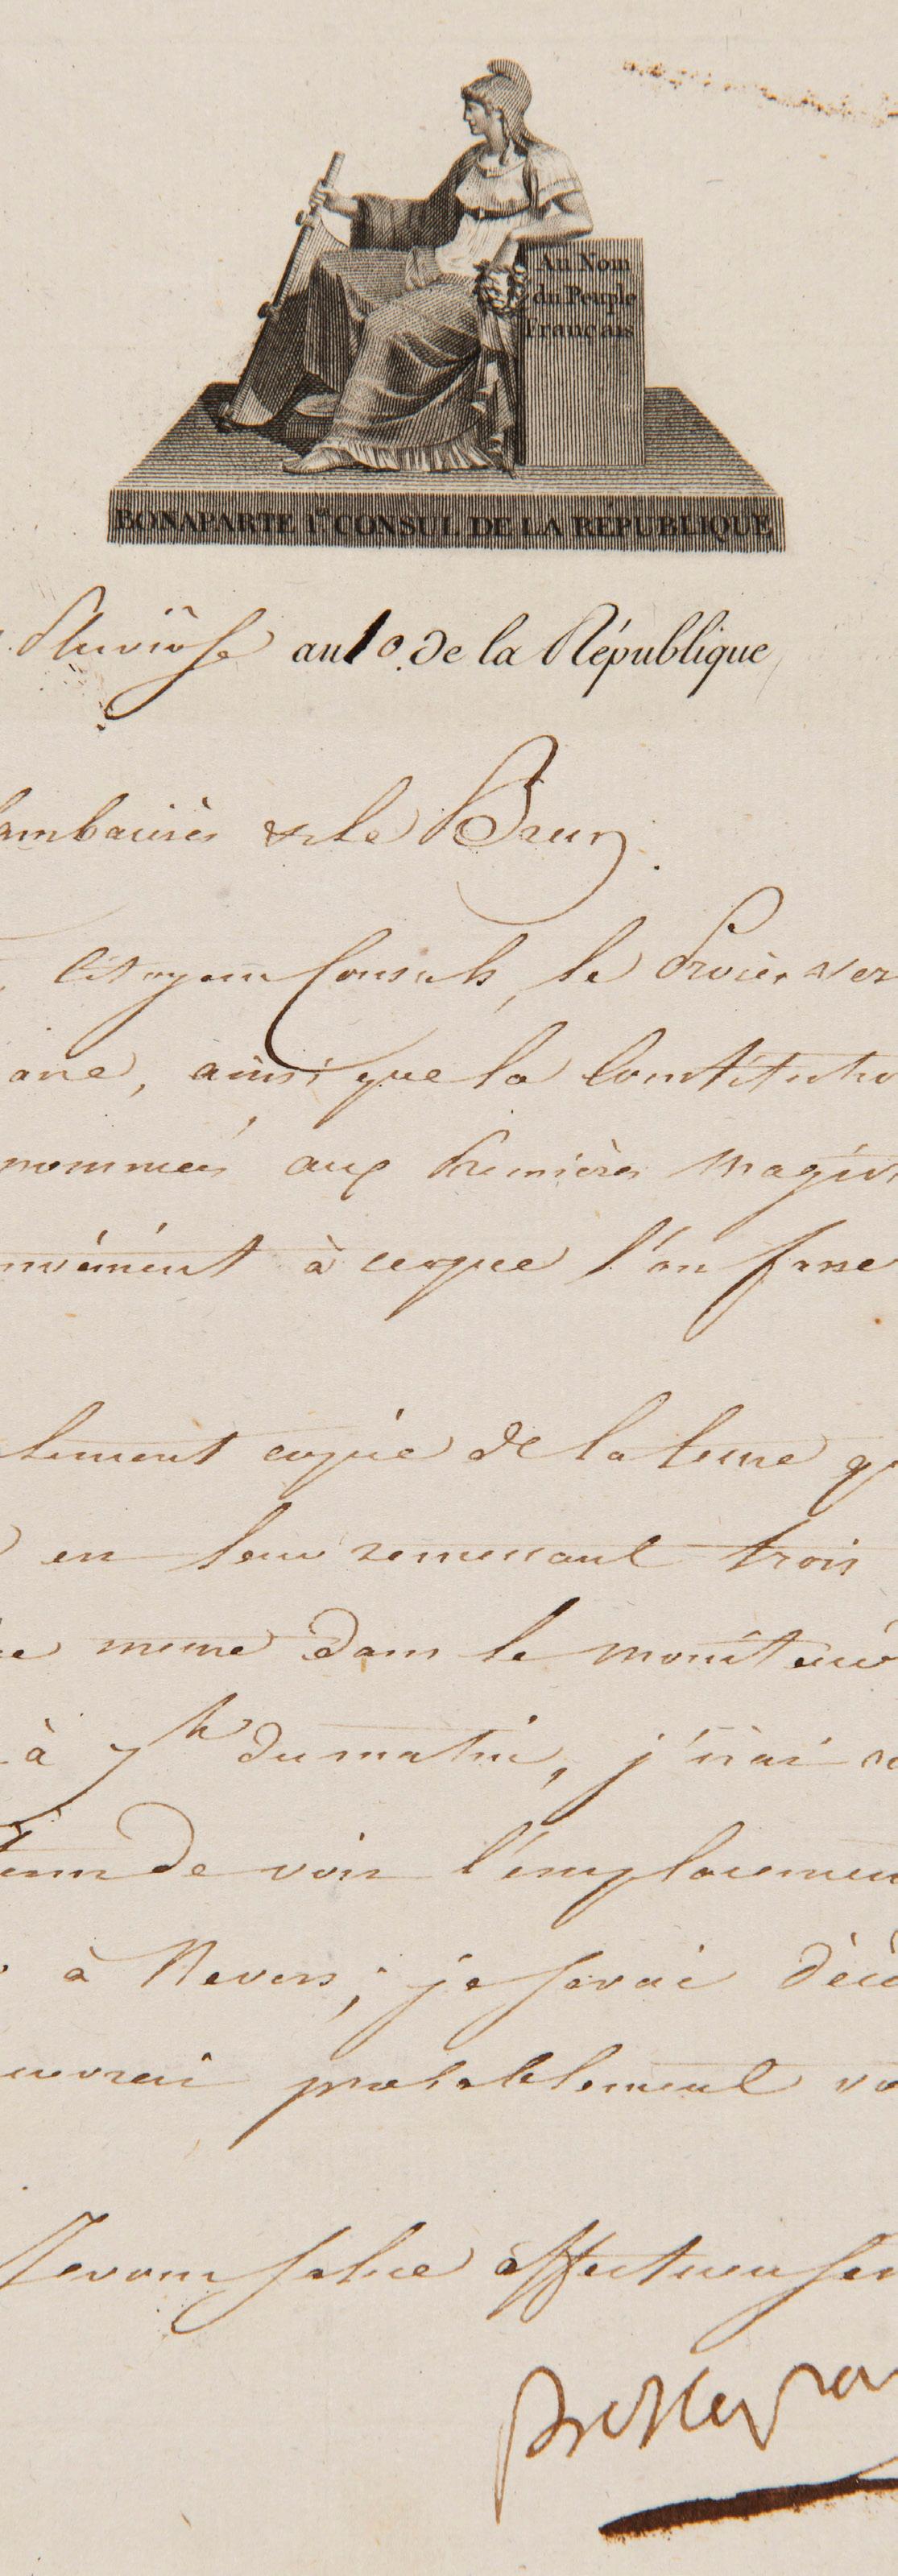 An Nom
du Peuple
Français
BONAPARTE 1er CONSUL DE LA RÉPUBLIQUE
Pluviôse an 10. de la République
ambacérès & le Brun.
, Citoyens Consuls, le Procès ver
ane, ainsi que la Constitutio
nommés aux premières magis
nvénient à ceque l'on fasse
lement copie de la lettre q
en leur remettant trois
e meme dans le moniteur
à 7h du matin, j'irai
de voir l'emplacemen
à Nevers; je serai déci
uverai probablement vo
Je vous salue affectueusem
Bonapar